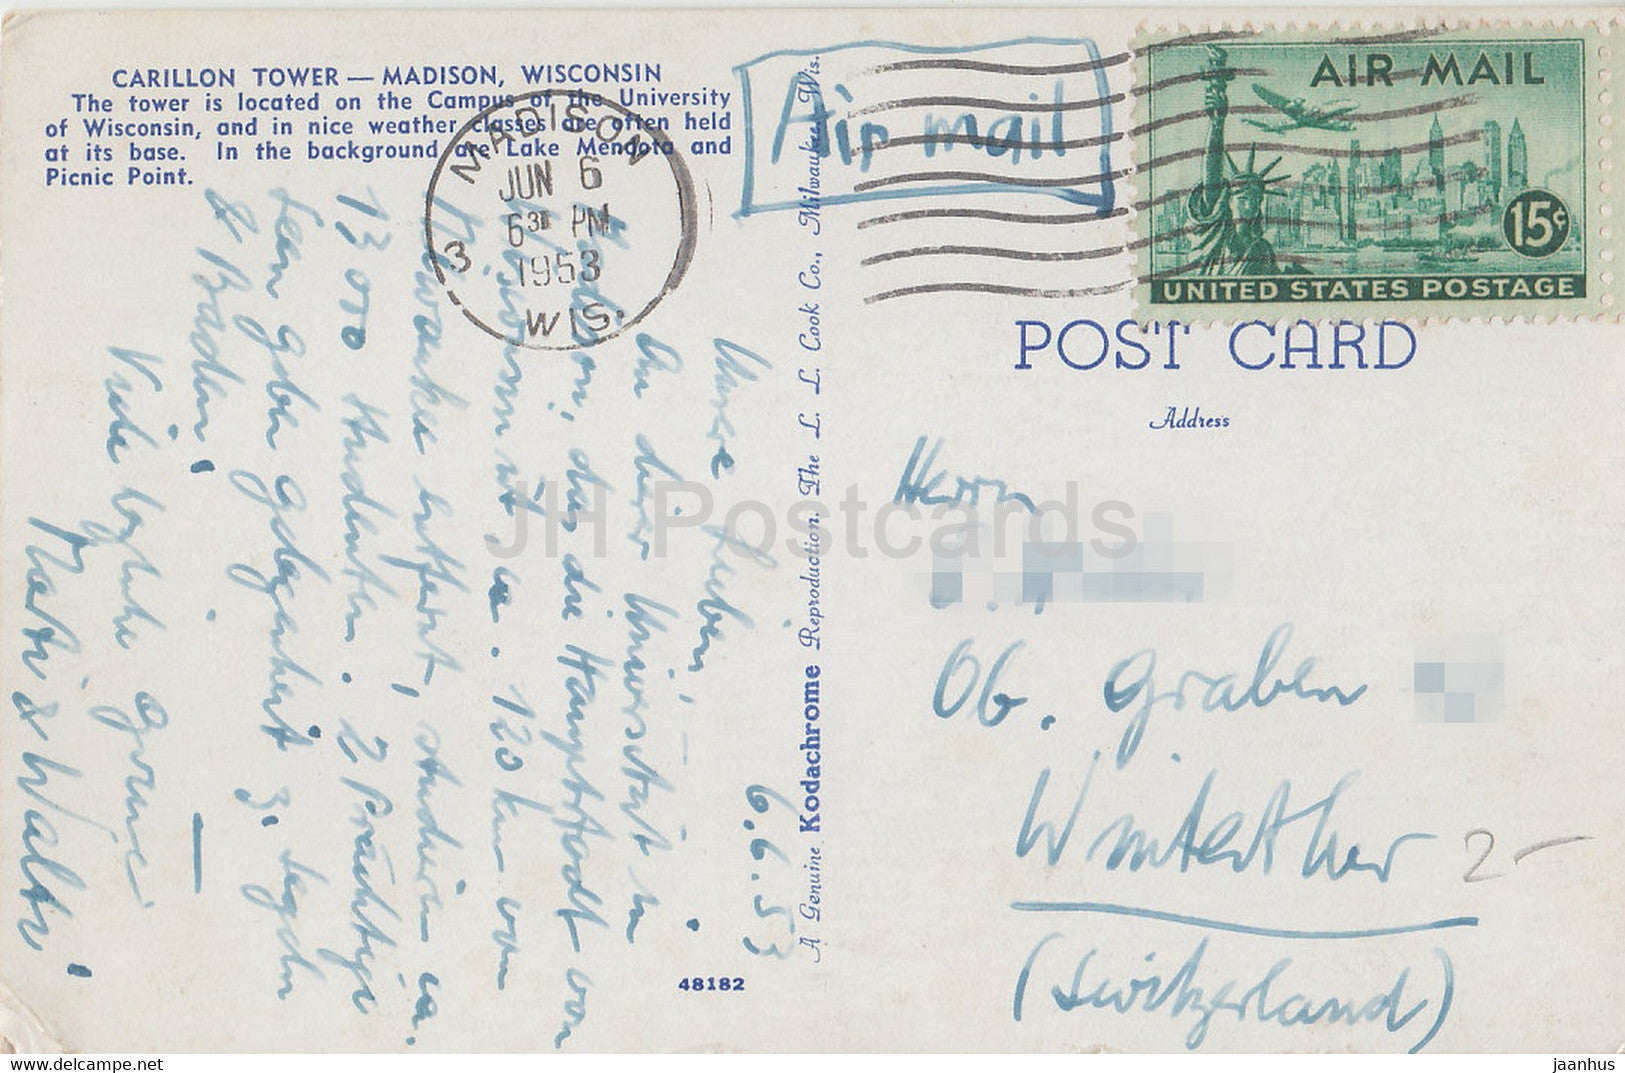 CARILLON TOWER — MADISON, WISCONSIN
The tower is located on the Campus of the University
of Wisconsin, and in nice weather classes are often held
at its base. In the background are Lake Mendota and
Picnic Point.
MADISON
JUN 6
6 30 PM
1953
3 WIS.
Air mail
AIR MAIL
15¢
UNITED STATES POSTAGE
POST CARD
Address
Herrn
Ob. Graben
Winterthur
(Switzerland)
2-
6.6.53
Meine Lieben, –
An dieser Universität in
Madison, das die Hauptstadt von
Wisconsin ist, ca. 120 km von
Milwaukee entfernt, studieren ca.
13000 Studenten. 2 prächtige
Seen geben Gelegenheit z. segeln
& Baden!
Viele herzliche Grüsse
A Genuine Kodachrome Reproduction. The L. L. Cook Co., Milwaukee, Wis.
48182
JH Postcards
www.delcampe.net
jaanhus